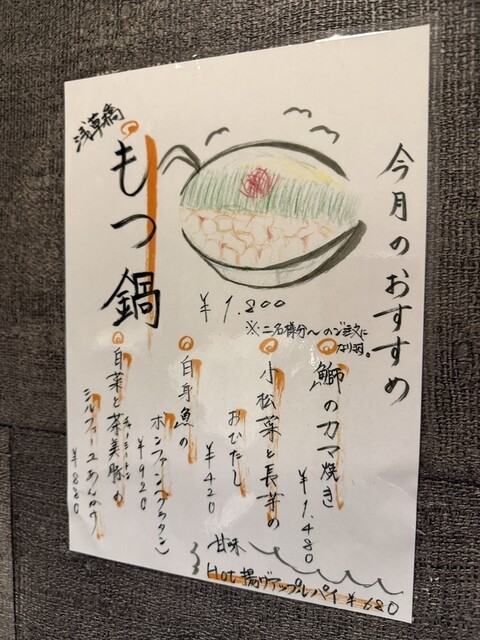 今月のおすすめ
浅草橋
もつ鍋
¥1.800
※二名様分〜のご注文に
なります。
鰤のカマ焼き
¥1.480
小松菜と長芋の
おひたし
¥420
白身魚の
ホンファンフウタン
¥920
白菜と茶美豚の
チャーミートン
ミルフィーユあんかけ
¥880
甘味
Hot揚げアップルパイ ¥680